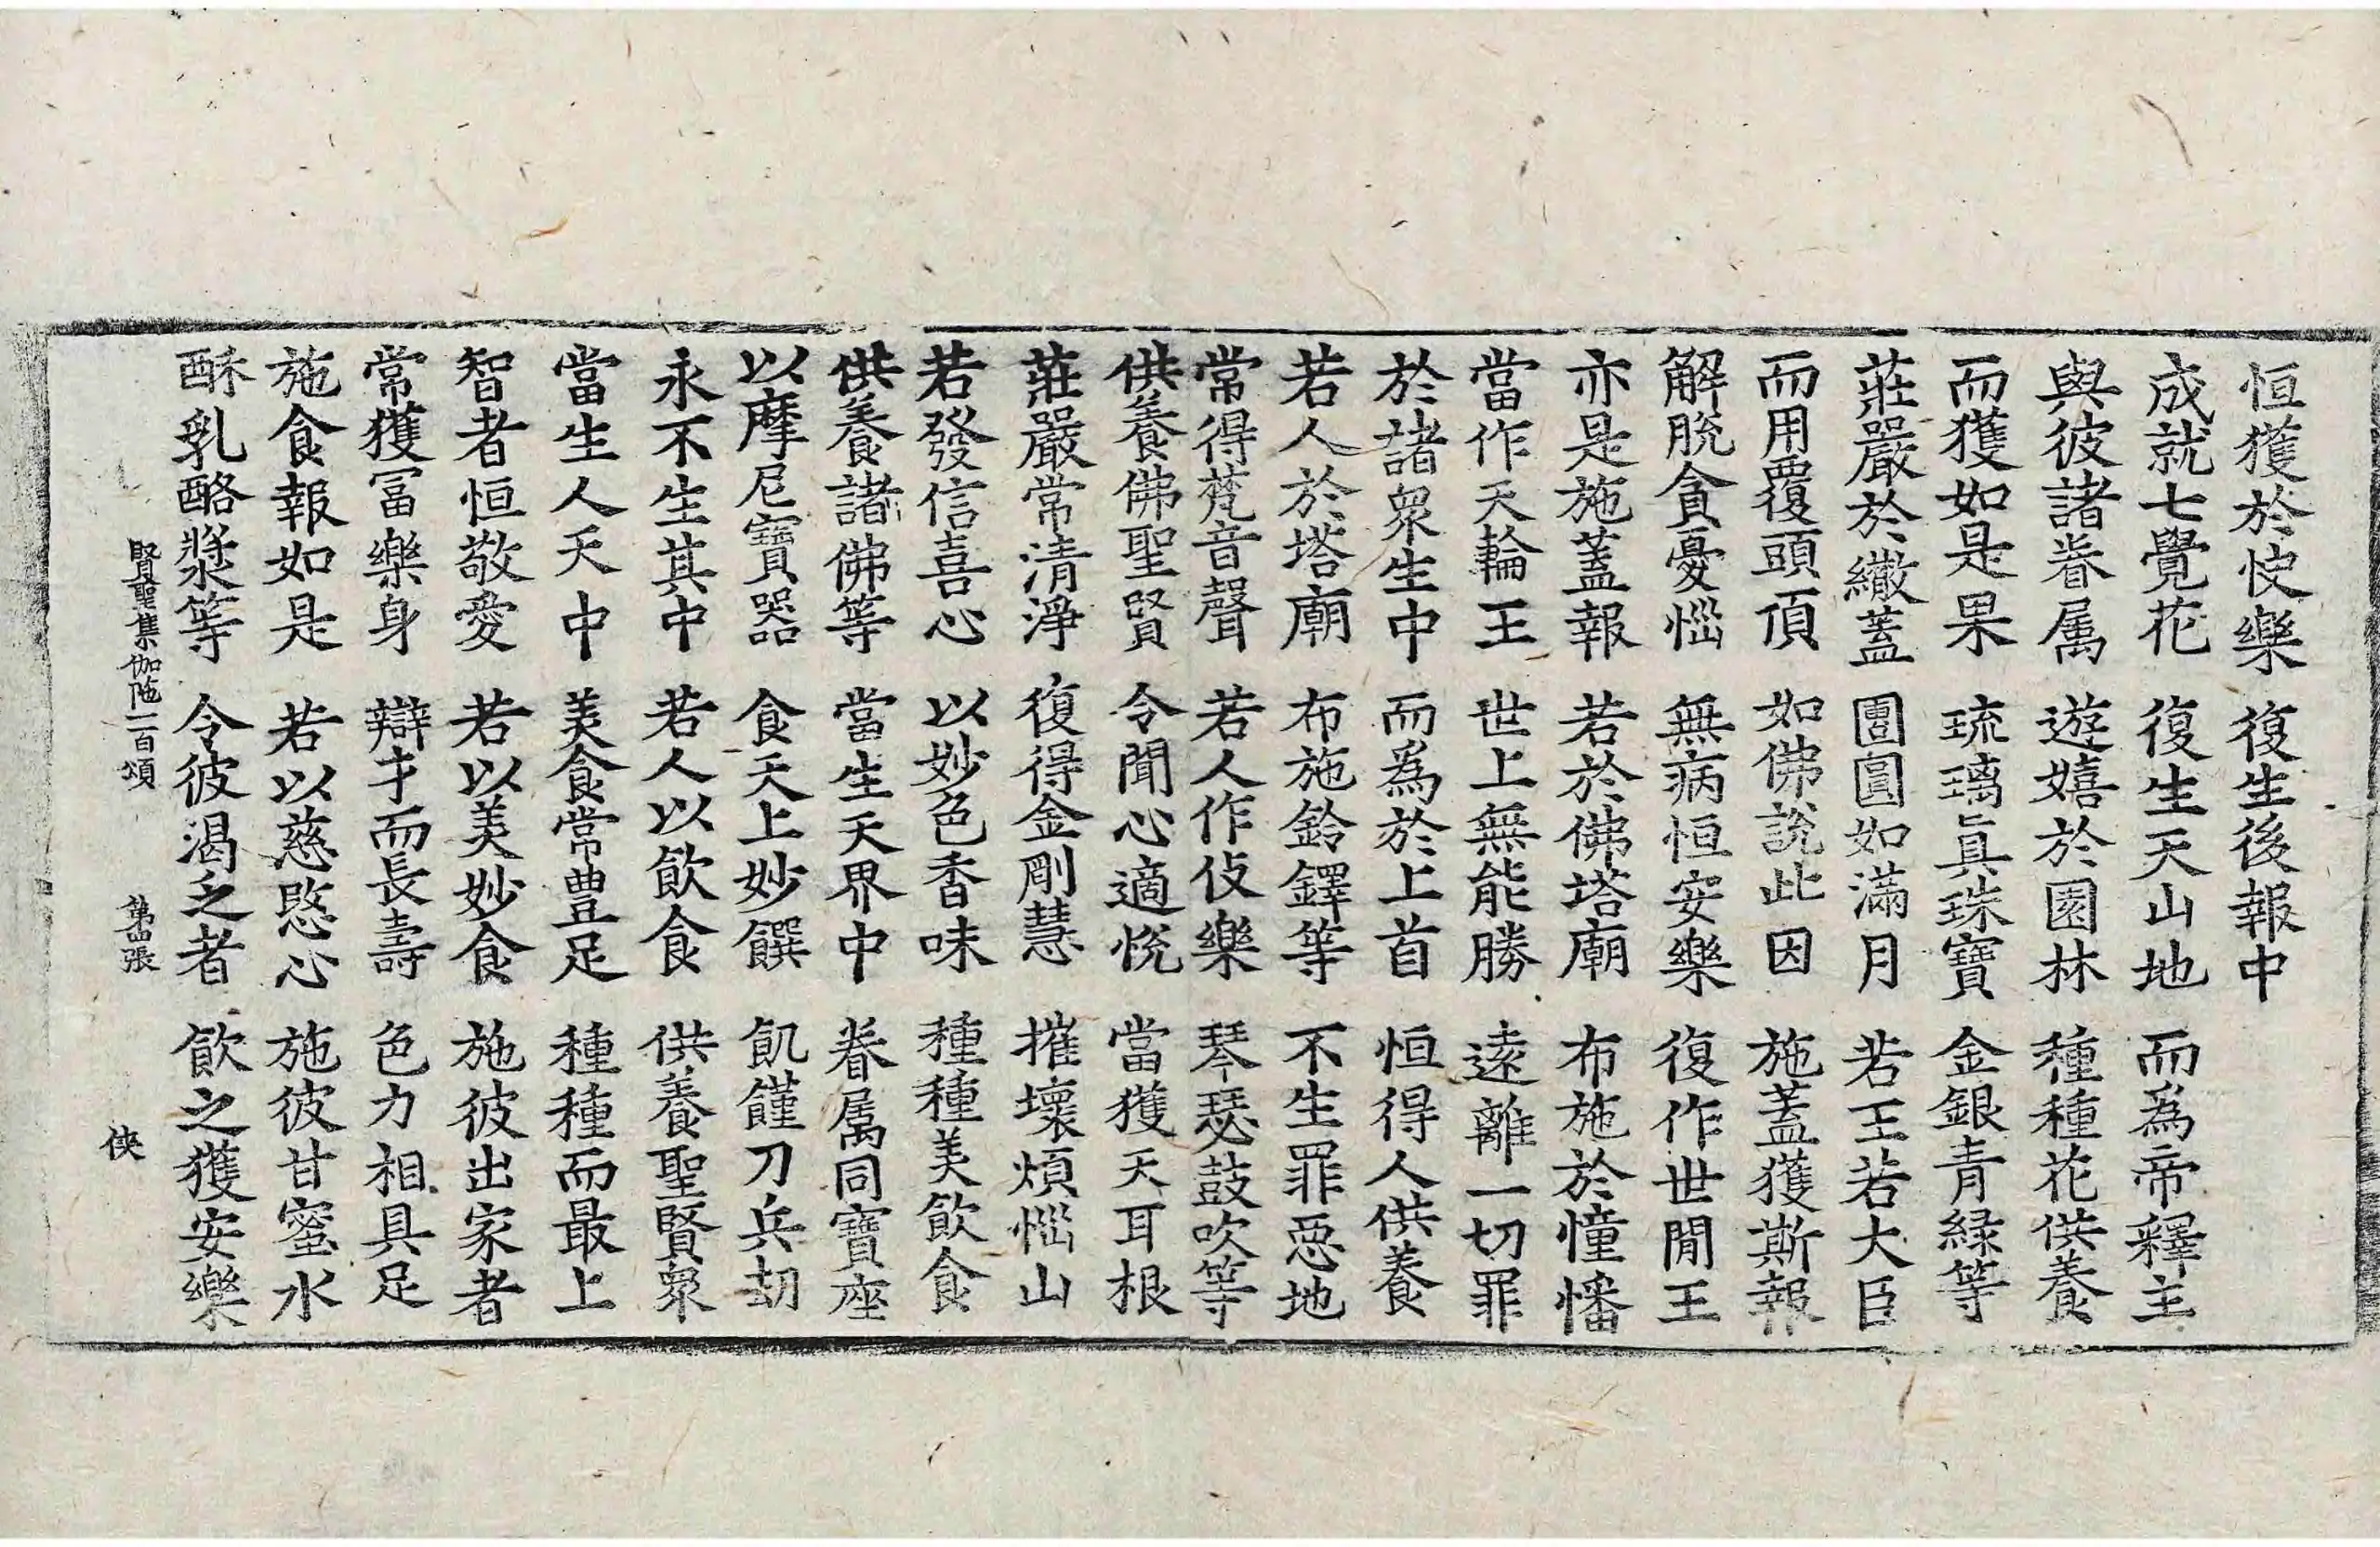 恒獲於快樂　復生後報中
成就七覺花　復生天山地　而為帝釋主
與彼諸眷属　遊嬉於園林　種種花供養
而獲如是果　琉璃真珠寶　金銀青緑等
莊嚴於繖蓋　團圓如滿月　若王若大臣
而用覆頭頂　如佛說此因　施蓋獲斯報
解脫貪憂惱　無病恒安樂　復作世間王
亦是施蓋報　若於佛塔廟　布施於憧幡
當作天輪王　世上無能勝　遠離一切罪
於諸衆生中　而為於上首　恒得人供養
若人於塔廟　布施鈴鐸等　不生罪惡地
常得梵音聲　若人作伎樂　琴瑟鼓吹等
供養佛聖賢　令聞心適悅　當獲天耳根
莊嚴常清淨　復得金剛慧　摧壞煩惱山
若發信喜心　以妙色香味　種種美飲食
供養諸佛等　當生天界中　眷属同寶座
以摩尼寶器　食天上妙饌　飢饉刀兵劫
永不生其中　若人以飲食　供養聖賢衆
當生人天中　美食常豊足　種種而最上
智者恒敬愛　若以美妙食　施彼出家者
常獲冨樂身　辯才而長壽　色力相具足
施食報如是　若以慈愍心　施彼甘蜜水
酥乳酪漿等　令彼渴乏者　飲之獲安樂
賢聖集伽陁一百頌　第四張　俠